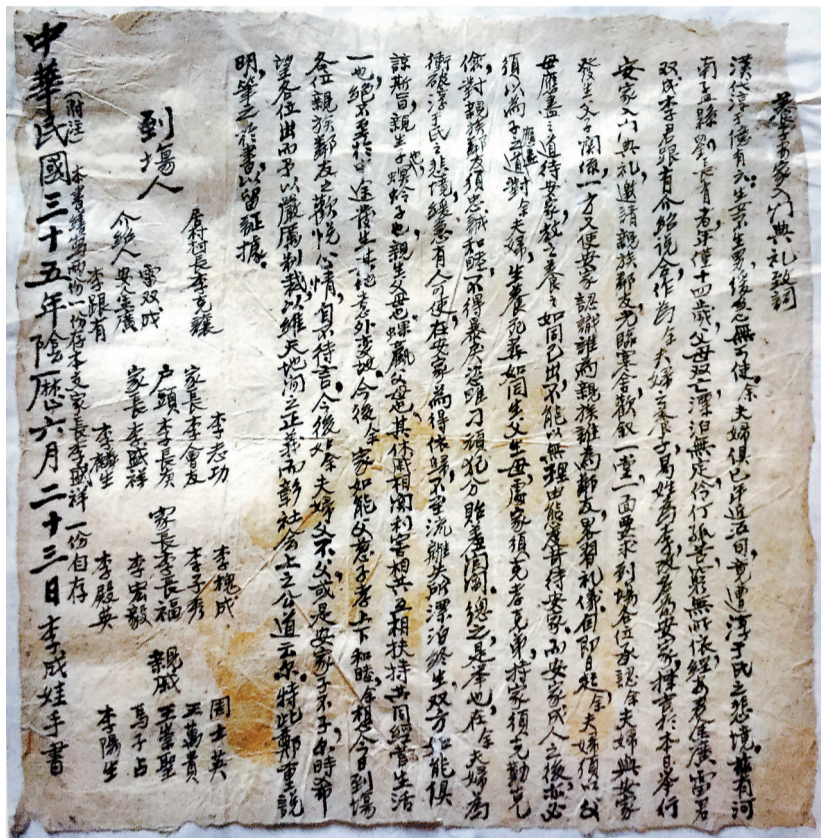 養子安家入門典礼致詞
漢代淳于億有云：生女不生男，緩急無可使。余夫婦俱已年近五旬，竟遭淳于氏之悲境。茲有河
南孟縣劉長有者，年僅十四歲，父母双亡，漂泊無定，伶仃孤苦，窮無所依，經吳君生廣雷君
双成李君跟有介紹説合，作為余夫婦之養子，易姓為李，改名為安家，擇吉於本日舉行
安家入門典礼，邀請親族鄰友光臨寒舍，歡叙一堂，一面要求到場各位承認余夫婦與安家
發生父子関係，一方又使安家認識誰為親族誰為鄰友，畧習礼儀。自即日起，余夫婦須以父
母應盡之道待安家，教之養之，如同己出，不能以無理由態度苛待安家，而安家成人之後，亦必
須以為子應盡之道對余夫婦，生養死葬，如同生父生母，處家須克孝克弟，持家須克勤克
儉，對親族鄰友須忠誠和睦，不得暴戾恣睢，刁頑犯分，貽羞閭。總之，是舉也，在余夫婦為
衝破淳于氏之悲境，緩急有人可使，在安家為得依歸，不至流離失所，漂泊終生，双方如能俱
諒斯旨，親生子也，螟蛉子也，親生父母也，蜾蠃父母也，其休戚相関，利害相共，互相扶持，共同經營生活
一也，絕不至於中途發生其他意外變故。今後余家如能父慈子孝，上下和睦，余想今日到場
各位親族鄰友之歡悅心情，自不待言，今後如余夫婦父不父，或是安家子不子，尚時希
望各位出而予以嚴厲制裁，以維天地間之正義，而彰社会上之公道云尔。特此鄭重說
明，筆之於書，以留証據。
到場人
居村村長李克讓
介紹人 雷双成
吳生廣
李跟有
李志功
家長李會友
户頭李長庚
家長李盛祥
李麟生
李槐成
李子秀
家長李長福
李宏毅
李殿英
親戚
周士英
王萬貴
王崇聖
馬子占
李陽生
（附註）本書繕寫兩份一份存本支家長李盛祥一份自存
中華民國三十五年陰曆六月二十三日李成娃手書